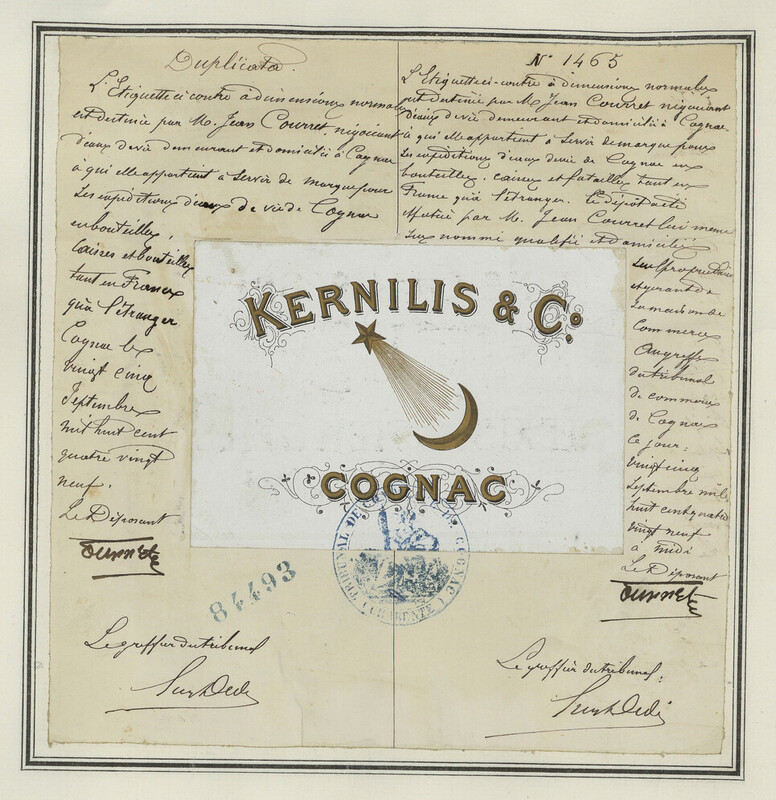 Duplicata.
L'Etiquette ci contre à dimensions normales
est destinée par M. Jean Courret négociant
d'eaux de vie demeurant et domicilié à Cognac
à qui elle appartient à servir de marque pour
Les expéditions d'eaux de vie de Cognac
en bouteilles,
caisses et bouteilles
tant en France
qu'à l'étranger
Cognac le
vingt cinq
Septembre
mil huit cent
quatre vingt
neuf.
Le Déposant
Le greffier du tribunal
N° 1465
L'Etiquette ci-contre à dimensions normales
est destinée par M. Jean Courret négociant
d'eaux de vie demeurant et domicilié à Cognac
à qui elle appartient à servir de marque pour
Les expéditions d'eaux de vie de Cognac en
bouteilles, caisses et futailles tant en
France qu'à l'étranger. Ce dépôt a été
effectué par M. Jean Courret lui même
sus nommé qualifié et domicilié
seul propriétaire
et gérant de
la maison de
Commerce
Au greffe
du tribunal
de commerce
de Cognac
ce jour:
vingt cinq
Septembre mil
huit cent quatre
vingt neuf
à midi
Le Déposant
Le greffier du tribunal:
KERNILIS & Co.
COGNAC
TRIBUNAL DE COGNAC (CHARENTE)
84493